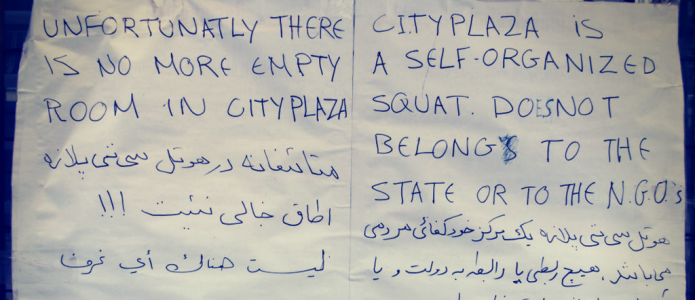 UNFORTUNATLY THERE
IS NO MORE EMPTY
ROOM IN CITYPLAZA
متائسفانه در هوتل سی تی پلازه
اطاق خالی نیست !!!
ليست هناك أي غرف
CITYPLAZA IS
A SELF-ORGANIZED
SQUAT. DOESNOT
BELONG TO THE
STATE OR TO THE N.G.O's
هوتل سی تی پلازه یک مرکز خودکفائی مردمی
می باشد. هیچ ربطی یا رابطه به دولت و یا